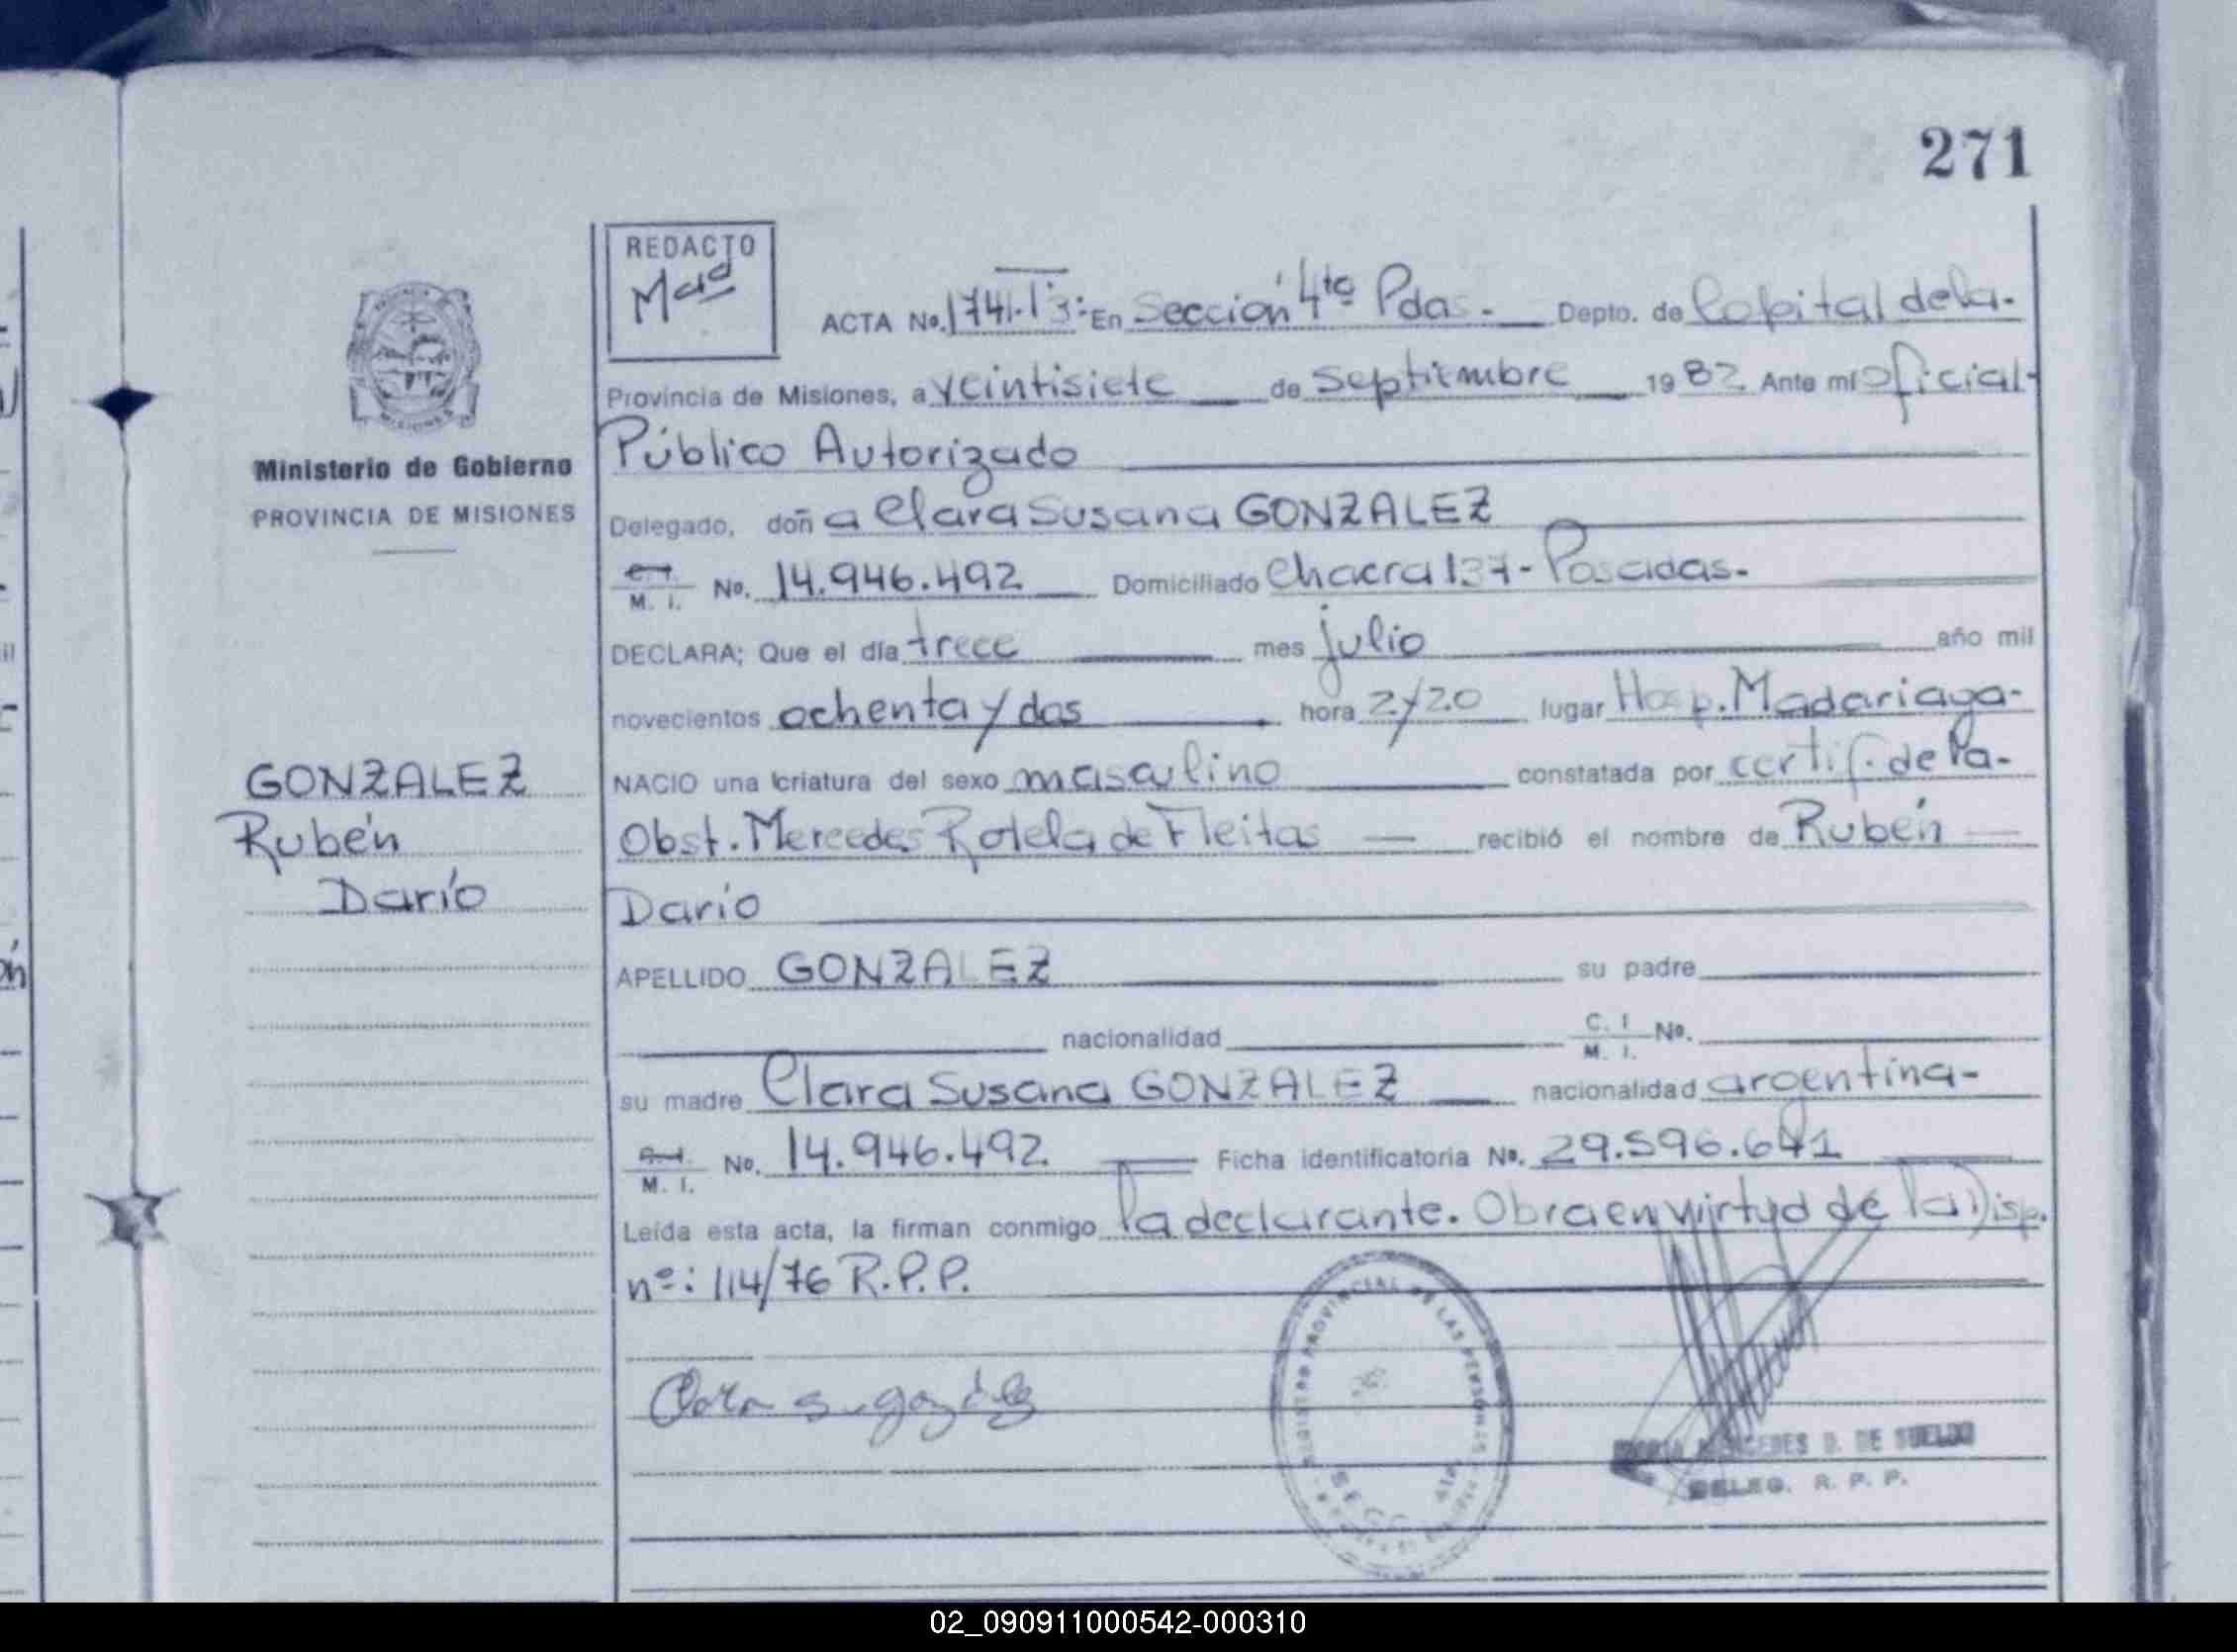 271
REDACTO
ACTA No. 1741. En Sección 4ta Pdas. Depto. de Capital de la-
Provincia de Misiones, a veintisiete de septiembre 1982 Ante mí oficial-
Público Autorizado
Ministerio de Gobierno
PROVINCIA DE MISIONES
Delegado, doña Clara Susana GONZALEZ
M. I. No. 14.946.492 Domiciliado Chacra 137- Posadas.-
DECLARA; Que el día trece mes julio año mil
novecientos ochenta y dos hora 2y20 lugar Hosp. Madariaga-
GONZALEZ
Rubén
Darío
NACIO una criatura del sexo masculino constatada por certif. de la-
Obst. Mercedes Rotela de Fleitas recibió el nombre de Rubén
Darío
APELLIDO GONZALEZ su padre
nacionalidad C. I. M. I. No.
su madre Clara Susana GONZALEZ nacionalidad argentina-
M. I. No. 14.946.492 Ficha identificatoria No. 29.596.641
Leída esta acta, la firman conmigo la declarante. Obra en virtud de la Disp.
nº: 114/76 R.P.P.
REGISTRO PROVINCIAL DE LAS PERSONAS
SECC. 4ta.
MERCEDES D. DE SUELDO
DELEG. R. P. P.
02_090911000542-000310